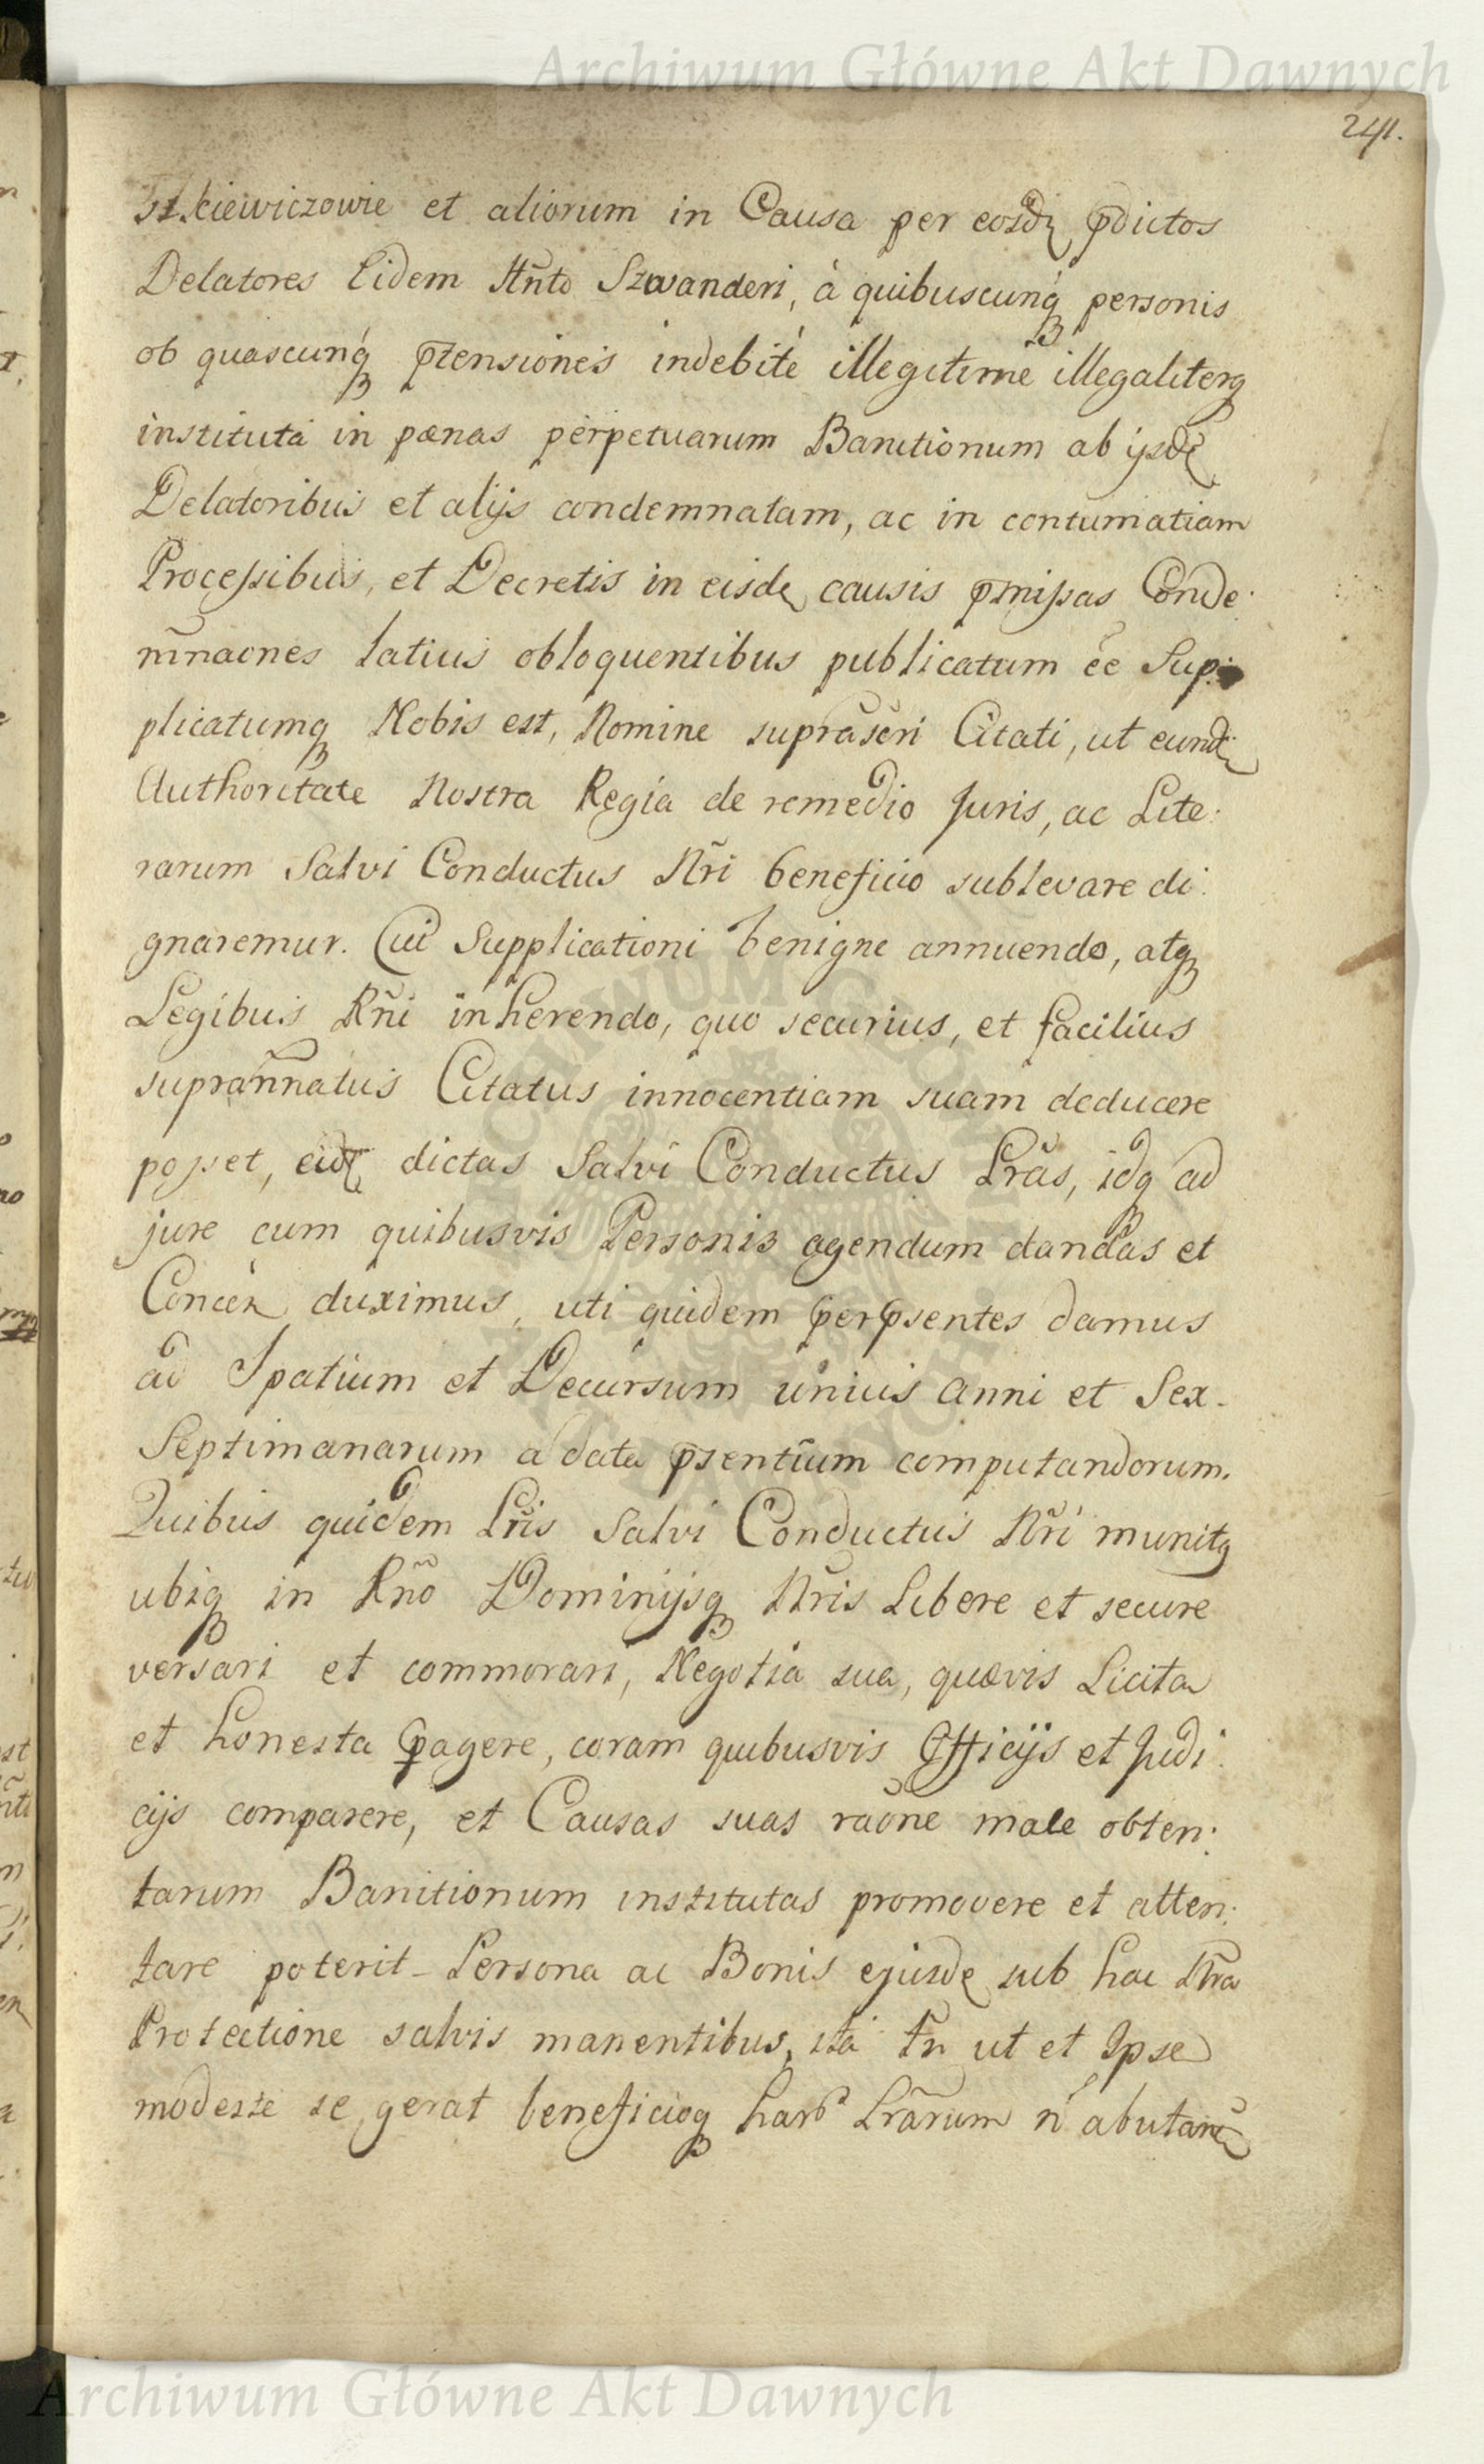 Archiwum Główne Akt Dawnych
241.
kiewiczowie et aliorum in Causa per eosdẽ p̃dictos
Delatores Eidem Szwanderi, à quibuscunq̃ personis
ob quascunq̃ p̃tensiones indebitè illegitimè illegaliterq̃
institutâ in pœnas perpetuarum Banitionum ab ijsdẽ
Delatoribus et alijs condemnatam, ac in contumatiam
Processibus, et Decretis in eisdẽ causis p̃missas Conde:
m̃nac̃nes latius obloquentibus publicatum eẽ Sup:
plicatumq̃ Nobis est, Nomine suprascri Citati, ut eundẽ
Authoritate Nostra Regia de remedio Juris, ac Lite:
rarum Salvi Conductus Nr̃i beneficio sublevare di:
gnaremur. Cui Supplicationi benigne annuendo, atq̃
Legibus Rñi inherendo, quo securius, et facilius
supranñatus Citatus innocentiam suam deducere
posset, eidẽ dictas Salvi Conductus Lr̃as, idq̃ ad
jure cum quibusvis Personis agendum dandas et
Concẽn duximus, uti quidem per p̃sentes damus
ad Spatium et Decursum unius anni et Sex
Septimanarum a data p̃sentium computandorum.
Quibus quidem Lr̃is Salvi Conductus Nr̃i munitq
ubiq̃ in Rño Dominijsq̃ Nr̃is Libere et secure
versari et commorari, Negotia sua, quævis Licita
et honesta ꝑagere, coram quibusvis Officijs et Judi:
cijs comparere, et Causas suas raõne male obten:
tarum Banitionum institutas promovere et atten:
tare poterit Persona ac Bonis ejusdẽ sub hac Nr̃a
Protectione salvis manentibus, ita tñ ut et Ipse
modeste se gerat beneficioq̃ harũ Lr̃arum ñ abutatũr
Archiwum Główne Akt Dawnych